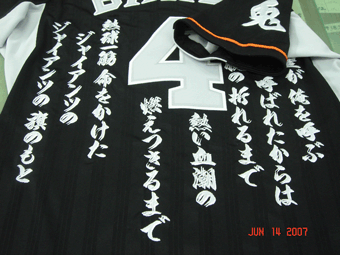 4
が俺を呼ぶ
呼ばれたからは
の折れるまで
熱い血潮の
燃えつきるまで
野球一筋 命をかけた
ジャイアンツの
ジャイアンツの 旗のもと
JUN 14 2007